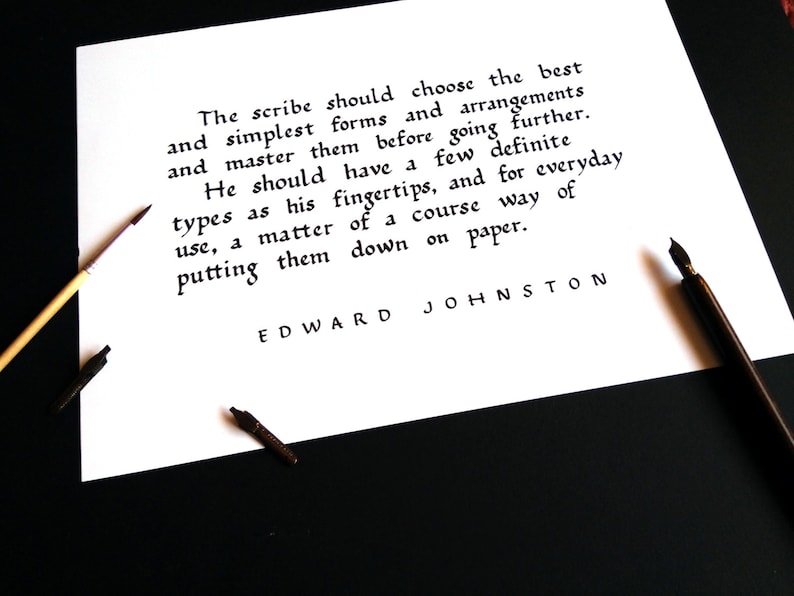 The scribe should choose the best
and simplest forms and arrangements
and master them before going further.
He should have a few definite
types as his fingertips, and for everyday
use, a matter of a course way of
putting them down on paper.
EDWARD JOHNSTON